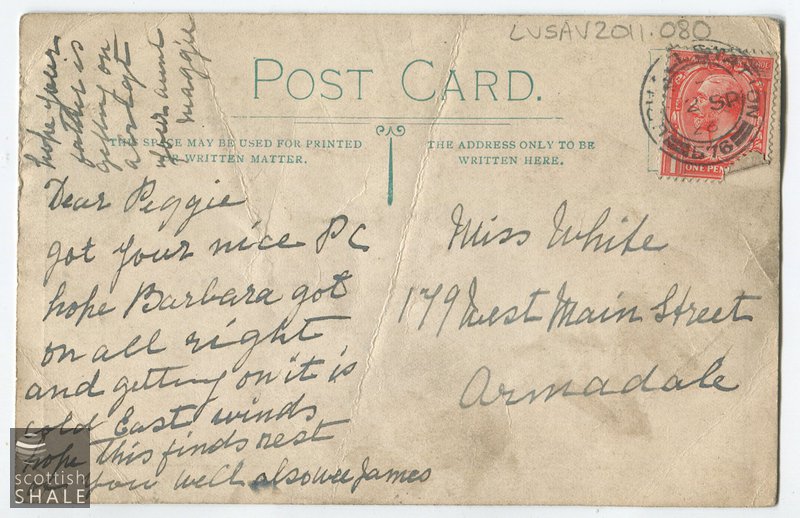 LVSAV2011.080
POST CARD.
THIS SPACE MAY BE USED FOR PRINTED
OR WRITTEN MATTER.
THE ADDRESS ONLY TO BE
WRITTEN HERE.
Dear Peggie
got your nice PC
hope Barbara got
on all right
and getting on it is
cold East winds
hope this finds rest
you well also wee James
hope your
father is
getting on
alright
your aunt
Maggie
Miss White
179 West Main Street
Armadale
2 SP
576
ONE PEN
scottish
SHALE